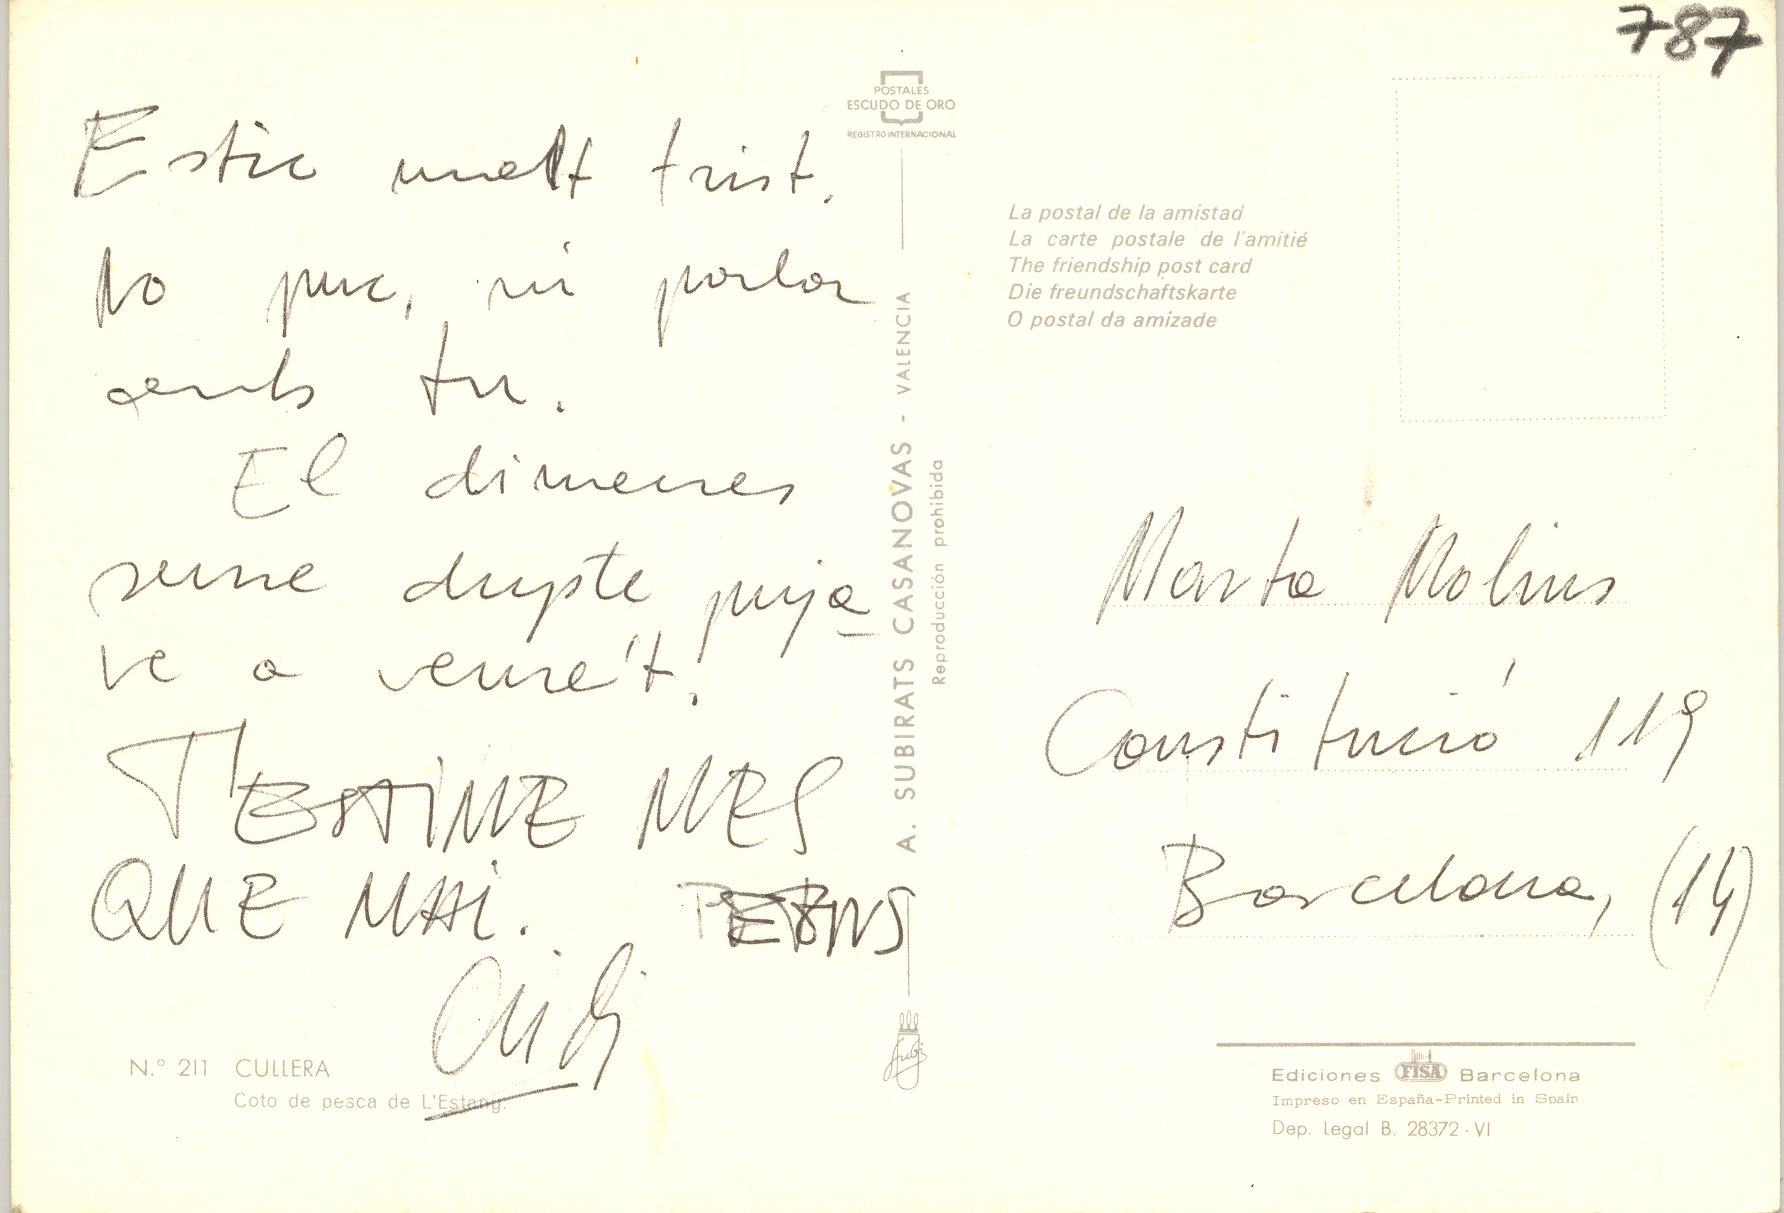 787
Estic molt trist.
No puc, ni parlar
amb tu.
El dimecres
sense dupte puja
ve a veure't.
T'ESTIME MES
QUE MAI. PETONS
N.º 211 CULLERA
Coto de pesca de L'Estany.
POSTALES
ESCUDO DE ORO
REGISTRO INTERNACIONAL
A. SUBIRATS CASANOVAS - VALENCIA
Reproducción prohibida
Subi
La postal de la amistad
La carte postale de l'amitié
The friendship post card
Die freundschaftskarte
O postal da amizade
Marta Molins
Constitució 119
Barcelona, (14)
Ediciones FISA Barcelona
Impreso en España-Printed in Spain
Dep. legal B. 28372-VI